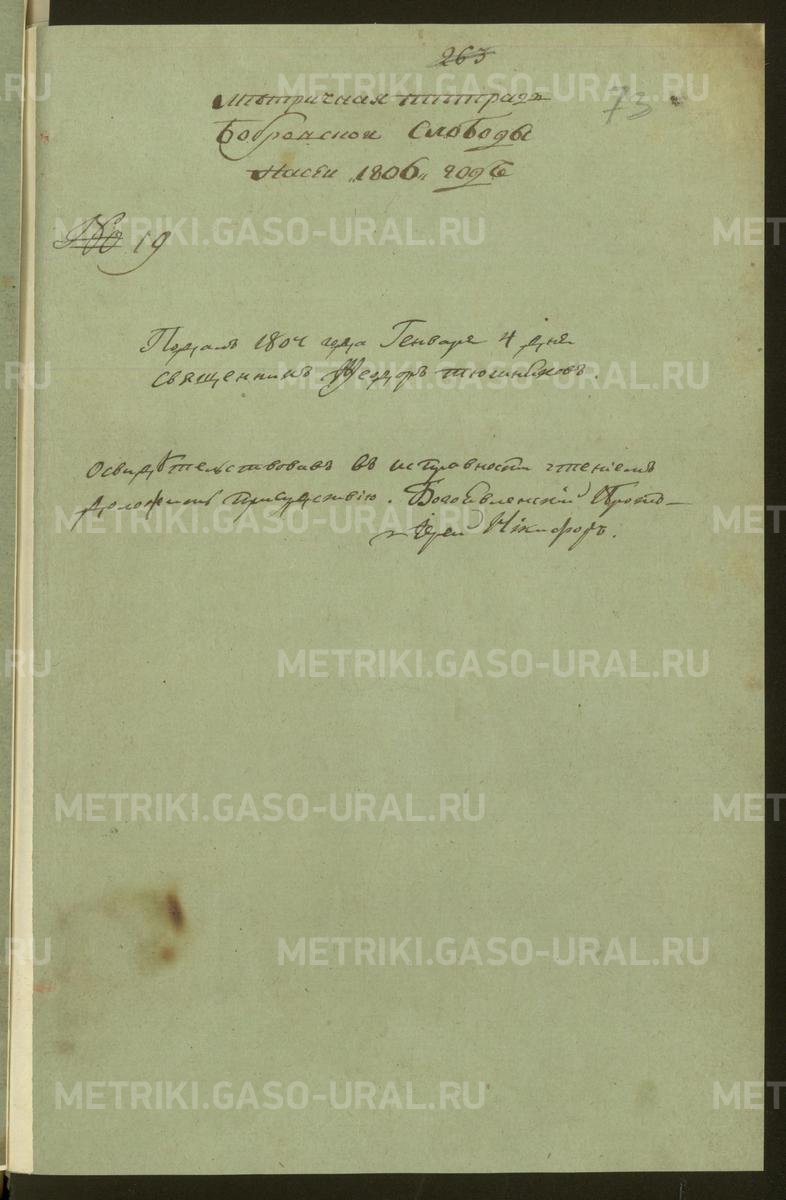 263
73
Метричная тетрадь
Бобровской Слободы
На сей „1806„ годъ
№ 19
Подалъ 1807 года Генваря 4 дня
священникъ Федоръ
Освидѣтельствовавъ въ исправности чтеніемъ
доложить присудствію. Богоявленскій Прото-
Іерей Никифоръ.
METRIKI.GASO-URAL.RU